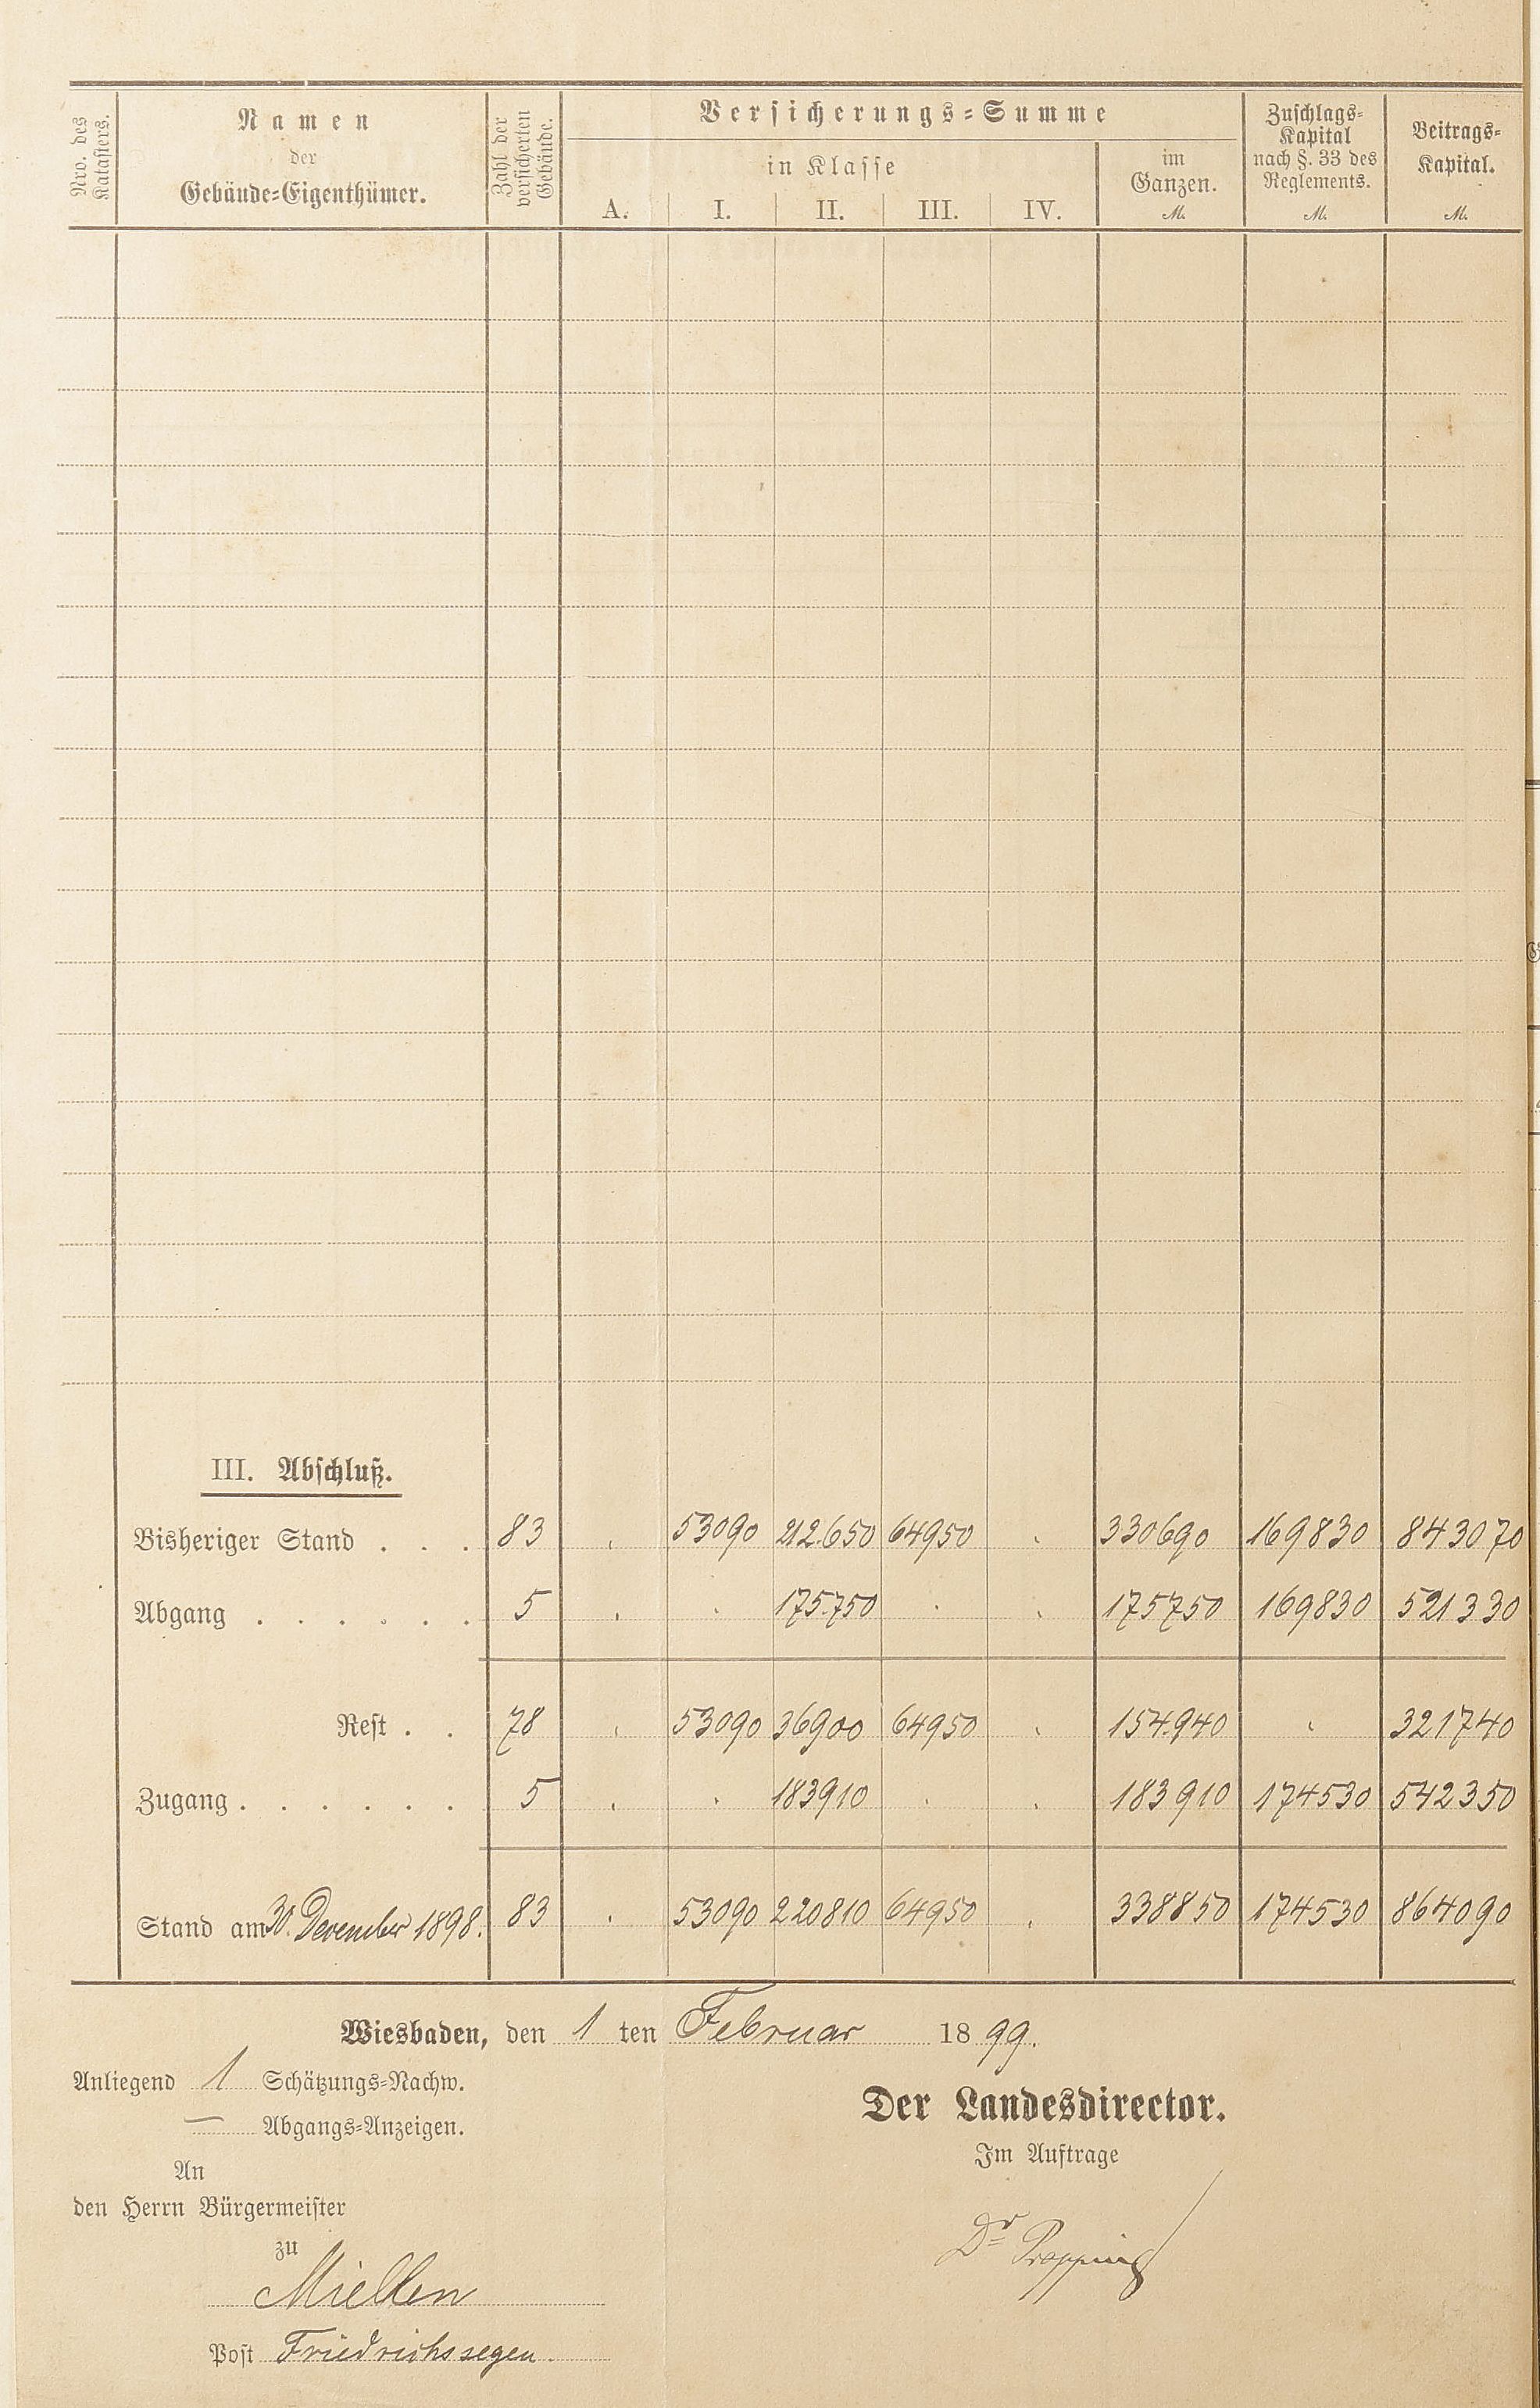 Nro. des Katasters.
Namen
der
Gebäude=Eigenthümer.
Zahl der versicherten Gebäude.
Versicherungs=Summe
in Klasse
A. I. II. III. IV.
im
Ganzen.
M.
Zuschlags=
Kapital
nach §. 33 des
Reglements.
M.
Beitrags=
Kapital.
M.
III. Abschluß.
Bisheriger Stand . . . 83 . 53090 212.650 64950 . 330690 169830 843070
Abgang . . . . . . 5 . . 175.750 . . 175750 169830 521330
Rest . . 78 . 53090 36900 64950 . 154.940 . 321740
Zugang . . . . . . 5 . . 183910 . . 183910 174530 542350
Stand am 30. Dezember 1898. 83 . 53090 220810 64950 . 338850 174530 864090
Wiesbaden, den 1 ten Februar 1899.
Anliegend 1 Schätzungs=Nachw.
— Abgangs=Anzeigen.
Der Landesdirector.
Im Auftrage
Dr
An
den Herrn Bürgermeister
zu
Miellen
Post Friedrichssegen.